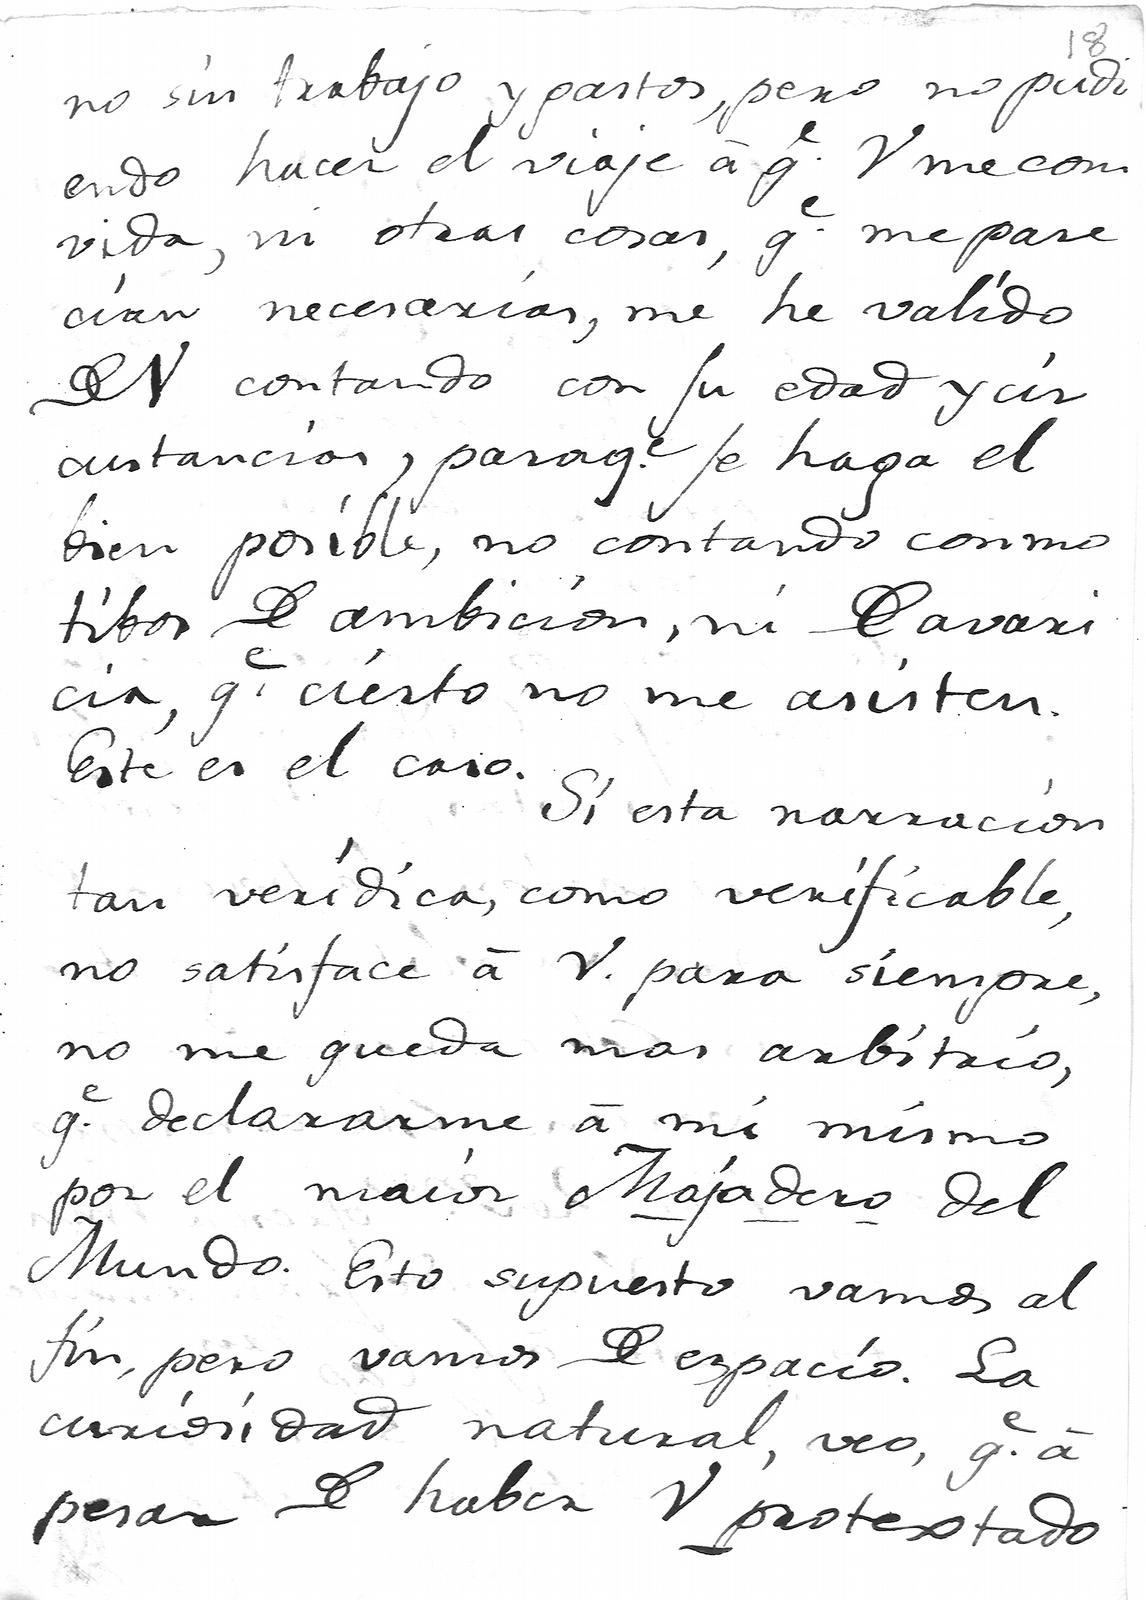 18
no sin trabajo y gastos, pero no pudi
endo hacer el viaje â q.e V me con
vida, ni otras cosas, q.e me pare
cian necesarias, me he valido
De V contando con su edad y cir
custancias, paraq.e se haga el
bien posible, no contando con mo
tibos De ambicion, ni De avari
cia, q.e cierto no me asisten.
Este es el caso.
Si esta narracion
tan verídica, como verificable,
no satisface â V. para siempre,
no me queda mas arbitrio,
q.e declararme â mi mismo
por el maior Majadero del
Mundo. Esto supuesto vamos al
fin, pero vamos De espacio. La
curiosidad natural, veo, q.e â
pesar De haber V protextado